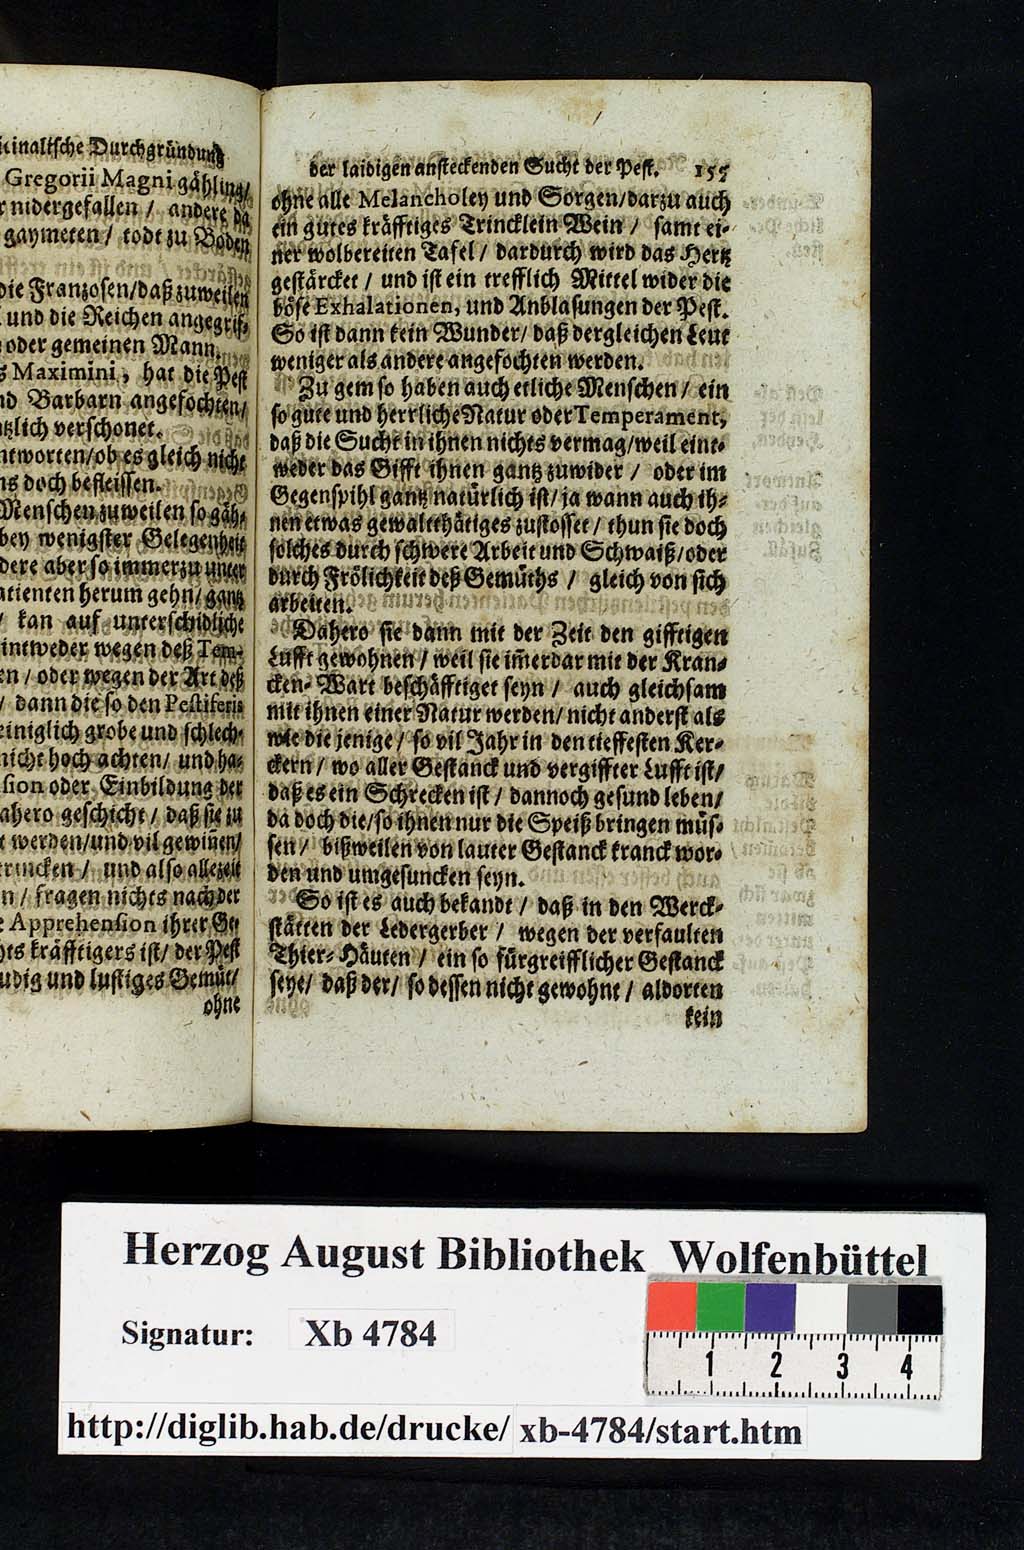 Durchgründung
Gregorii Magni gähling/
nidergefallen / andere da
gaymeten / todt zu Boden
die Franzosen/daß zuweilen
und die Reichen angegrif-
oder gemeinen Mann.
Maximini, hat die Pest
Barbarn angefochten/
verschonet.
ob es gleich nicht
doch befleissen.
Menschen zuweilen so gäh-
bey wenigster Gelegenheit
aber so immerzu unter
herum gehn/gantz
/ kan auf unterschidliche
wegen deß Tem-
/ oder wegen der Art deß
/ dann die so den Pestiferis
grobe und schlech-
nicht hoch achten/ und ha-
oder Einbildung der
geschicht / daß sie zu
werden/und vil gewiñen/
/ und also allezeit
/ fragen nichts nach der
Apprehension ihrer Ge-
kräfftigers ist/ der Pest
und lustiges Gemüt/
ohne
der laidigen ansteckenden Sucht der Pest. 155
ohne alle Melancholey und Sorgen/darzu auch
ein gutes kräfftiges Trincklein Wein / samt ei-
ner wolbereiten Tafel / dardurch wird das Hertz
gestärcket / und ist ein trefflich Mittel wider die
böse Exhalationen, und Anblasungen der Pest.
So ist dann kein Wunder/ daß dergleichen Leut
weniger als andere angefochten werden.
Zu gem so haben auch etliche Menschen / ein
so gute und herrliche Natur oder Temperament,
daß die Sucht in ihnen nichts vermag/weil eint-
weder das Gifft ihnen gantz zuwider / oder im
Gegenspihl gantz natürlich ist/ ja wann auch ih-
nen etwas gewaltthätiges zustosset / thun sie doch
solches durch schwere Arbeit und Schwaiß/oder
durch Frölichkeit deß Gemüths / gleich von sich
arbeiten.
Dahero sie dann mit der Zeit den gifftigen
Lufft gewohnen / weil sie im̃erdar mit der Kran-
cken- Wart beschäfftiget seyn / auch gleichsam
mit ihnen einer Natur werden/ nicht anderst als
wie die jenige / so vil Jahr in den tieffesten Ker-
ckern / wo aller Gestanck und vergiffter Lufft ist/
daß es ein Schrecken ist / dannoch gesund leben/
da doch die/so ihnen nur die Speiß bringen müs-
sen / bißweilen von lauter Gestanck kranck wor-
den und umgesuncken seyn.
So ist es auch bekandt / daß in den Werck-
stätten der Ledergerber / wegen der verfaulten
Thier- Häuten / ein so fürgreifflicher Gestanck
seye/ daß der/ so dessen nicht gewohnt / aldorten
kein
Herzog August Bibliothek Wolfenbüttel
Signatur: Xb 4784
1 2 3 4
http://diglib.hab.de/drucke/ xb-4784/start.htm